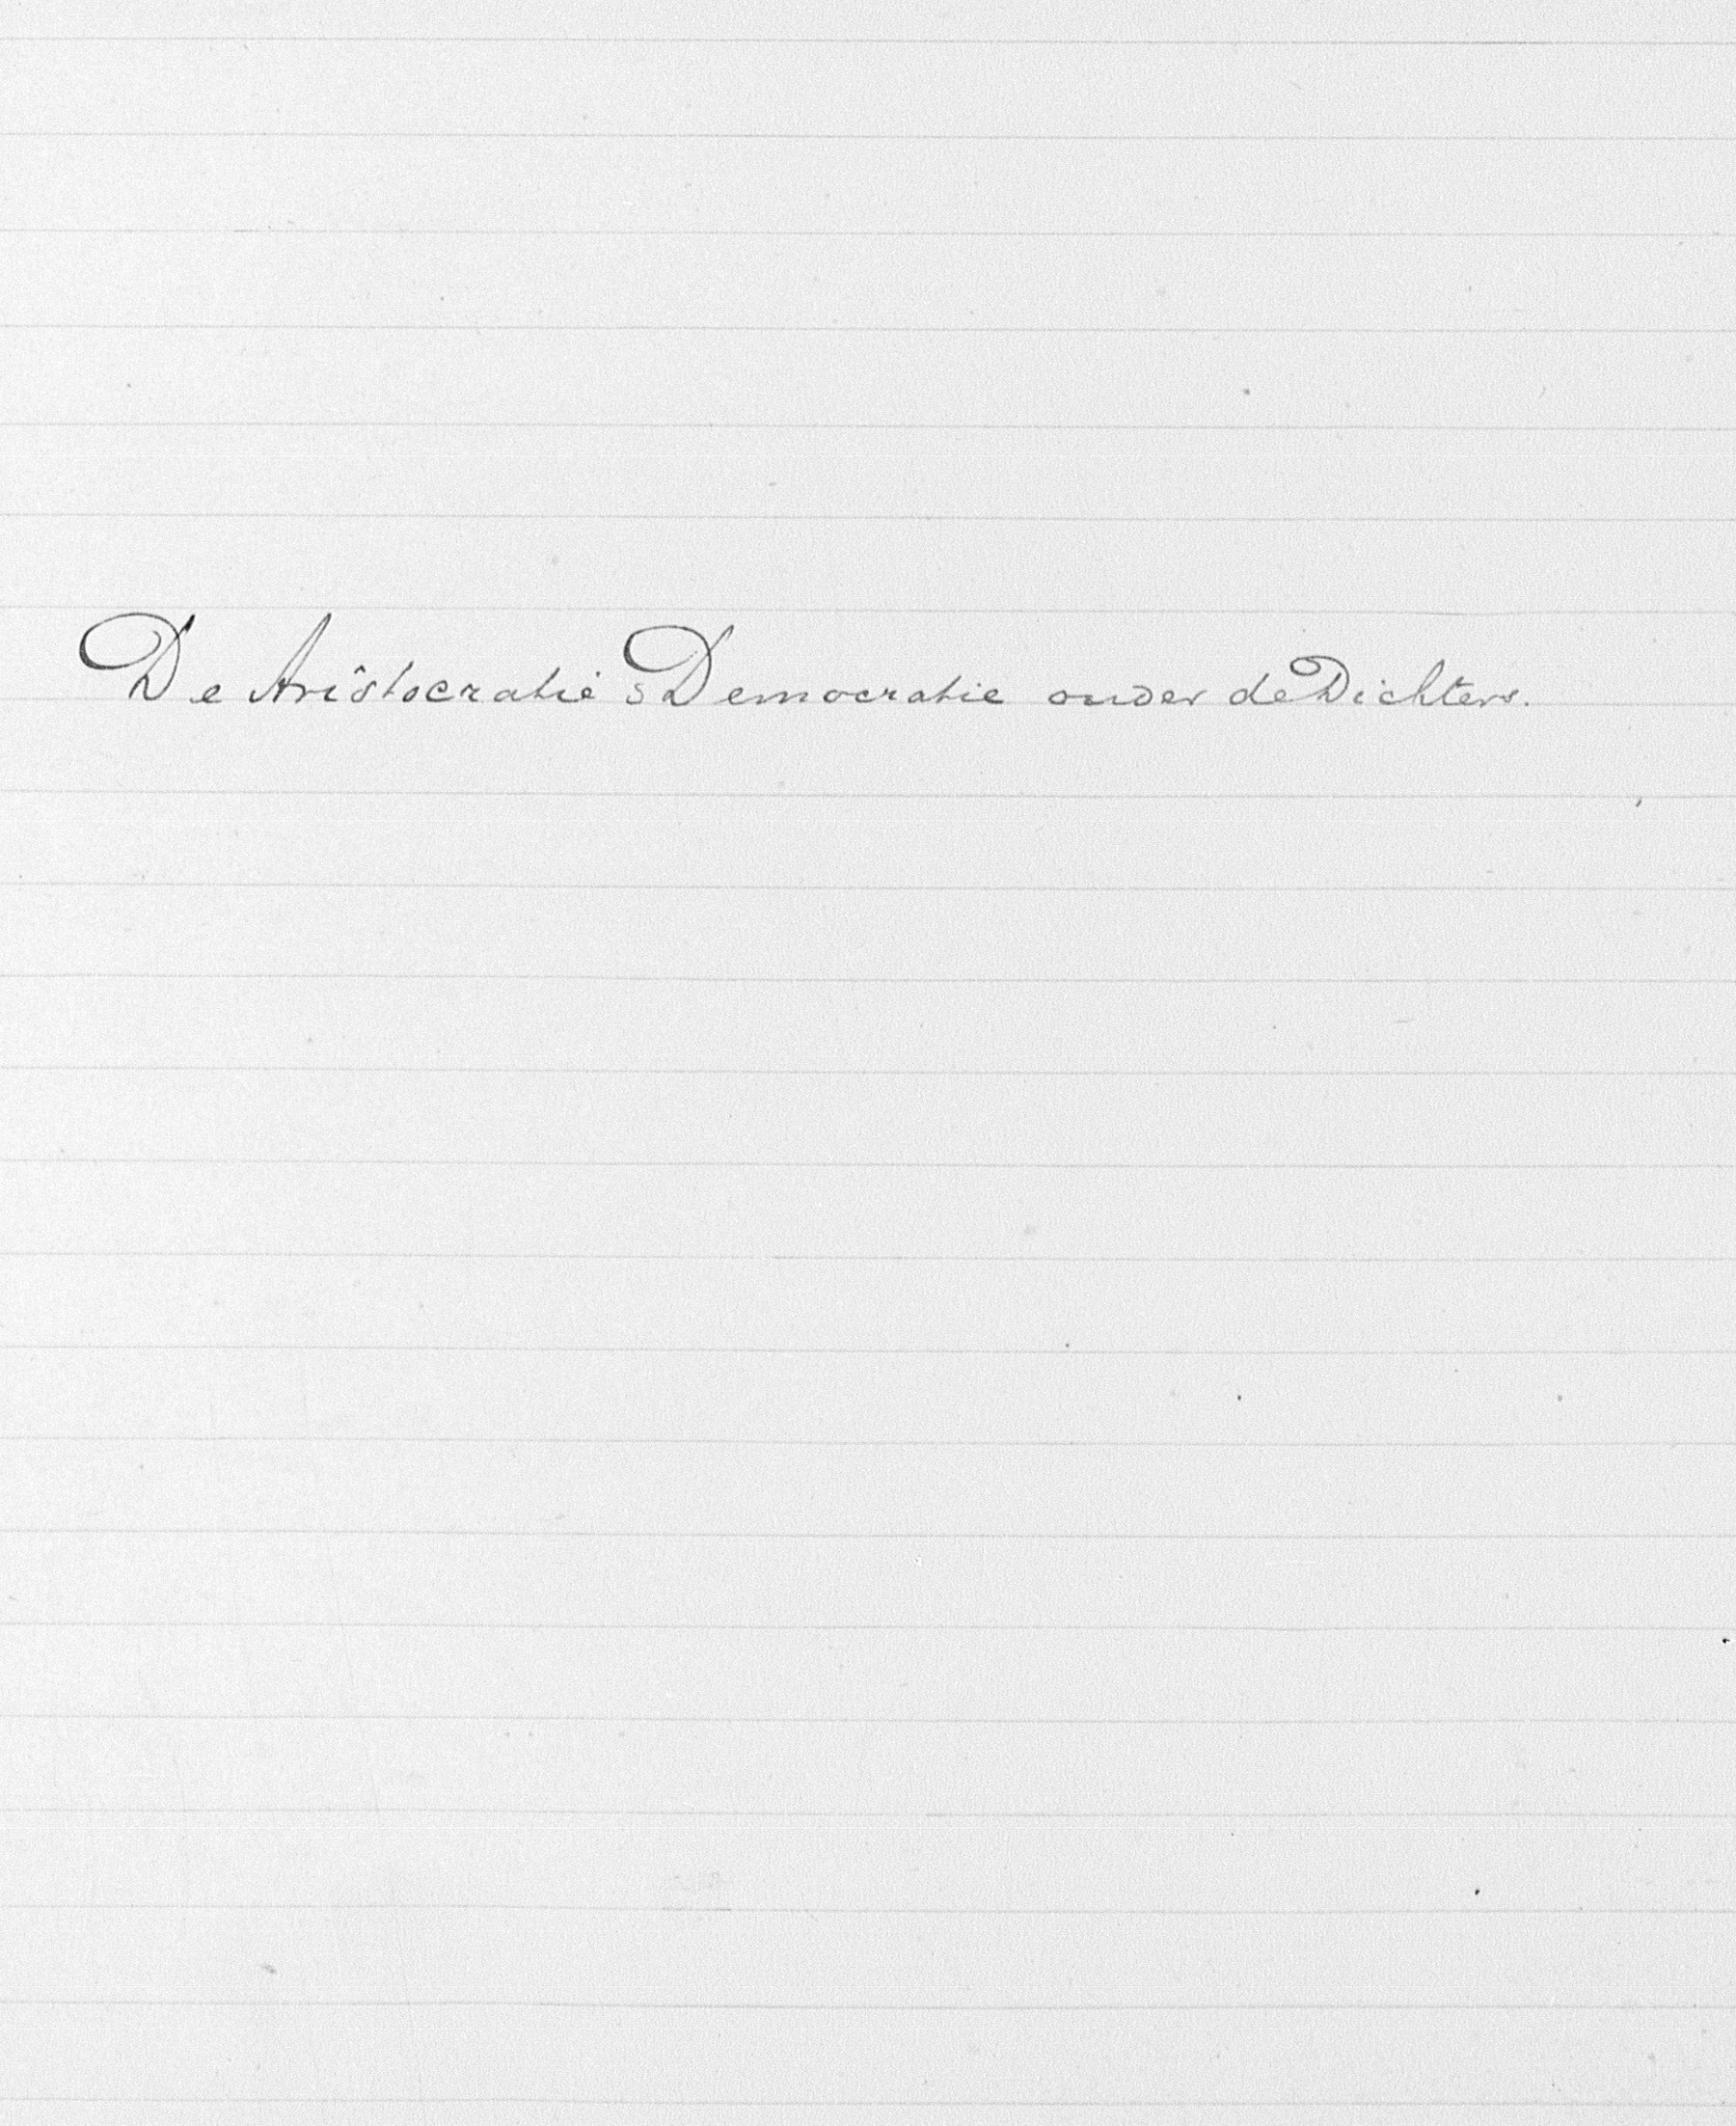 De Aristocratie & Democratie onder de Dichters.